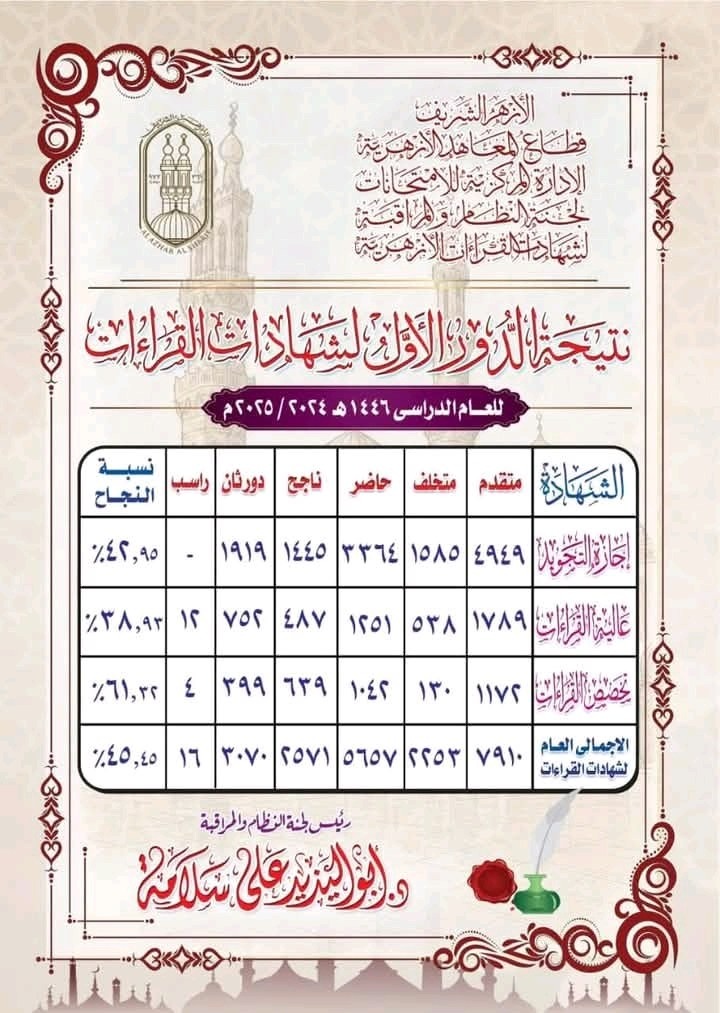 الأزهر الشريف
قطاع المعاهد الأزهرية
الإدارة المركزية للامتحانات
لجنة النظام والمراقبة
لشهادات القراءات الأزهرية
AL AZHAR AL SHARIF
نتيجة الدور الأول لشهادات القراءات
للعام الدراسى ١٤٤٦ هـ ٢٠٢٤ / ٢٠٢٥ م
الشهادة متقدم متخلف حاضر ناجح دور ثان راسب نسبة النجاح
إجازة التجويد ٤٩٤٩ ١٥٨٥ ٣٣٦٤ ١٤٤٥ ١٩١٩ - ٤٢,٩٥٪
عالية القراءات ١٧٨٩ ٥٣٨ ١٢٥١ ٤٨٧ ٧٥٢ ١٢ ٣٨,٩٣٪
تخصص القراءات ١١٧٢ ١٣٠ ١٠٤٢ ٦٣٩ ٣٩٩ ٤ ٦١,٣٢٪
الاجمالى العام لشهادات القراءات ٧٩١٠ ٢٢٥٣ ٥٦٥٧ ٢٥٧١ ٣٠٧٠ ١٦ ٤٥,٤٥٪
رئيس لجنة النظام والمراقبة
د. أبواليزيد على سلامة